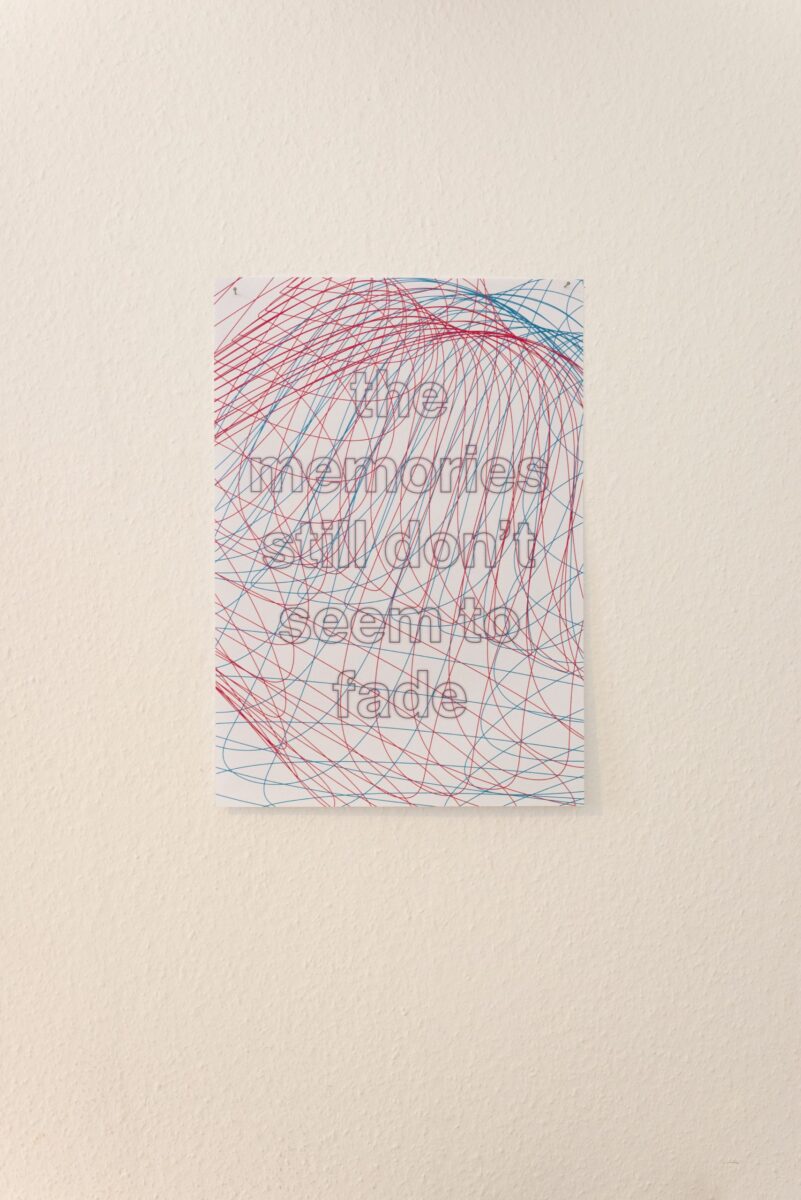 the
memories
still don't
seem to
fade